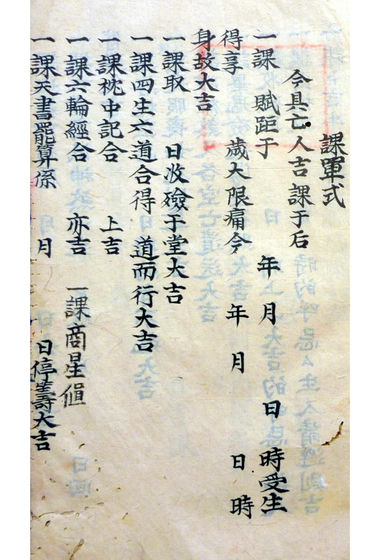 課單式
今具亡人吉課于后
一課 賦距于 年 月 日 時受生
得享 歲大限痛今 年 月 日 時
身故大吉
一課取 日收殮于堂大吉
一課四生六道合得 道而行大吉
一課枕中記合 上吉
一課六輪經合 亦吉 一課商星值
一課天書罷算係 月 日停喪壽大吉